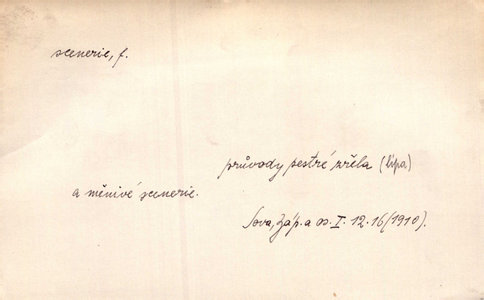 scenerie, f.
průvody pestré zřela (lípa)
a měnivé scenerie.
Sova, Záp. a os. I. 12. 16 (1910).